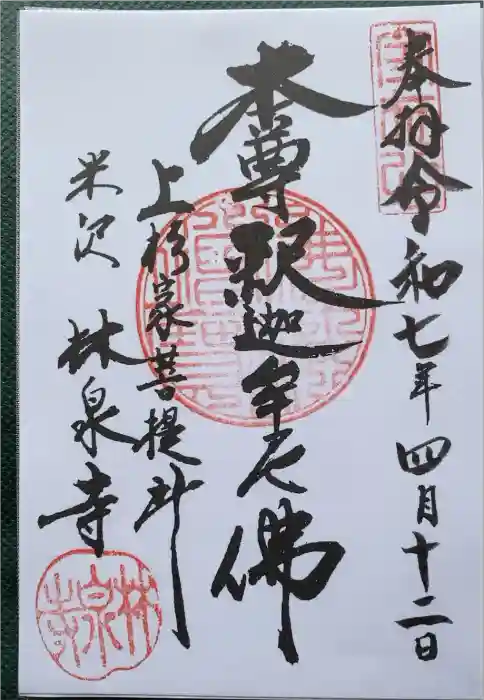 奉拝令和七年四月十二日
本尊釈迦牟尼佛
上杉家菩提所
米沢 林泉寺
林泉寺